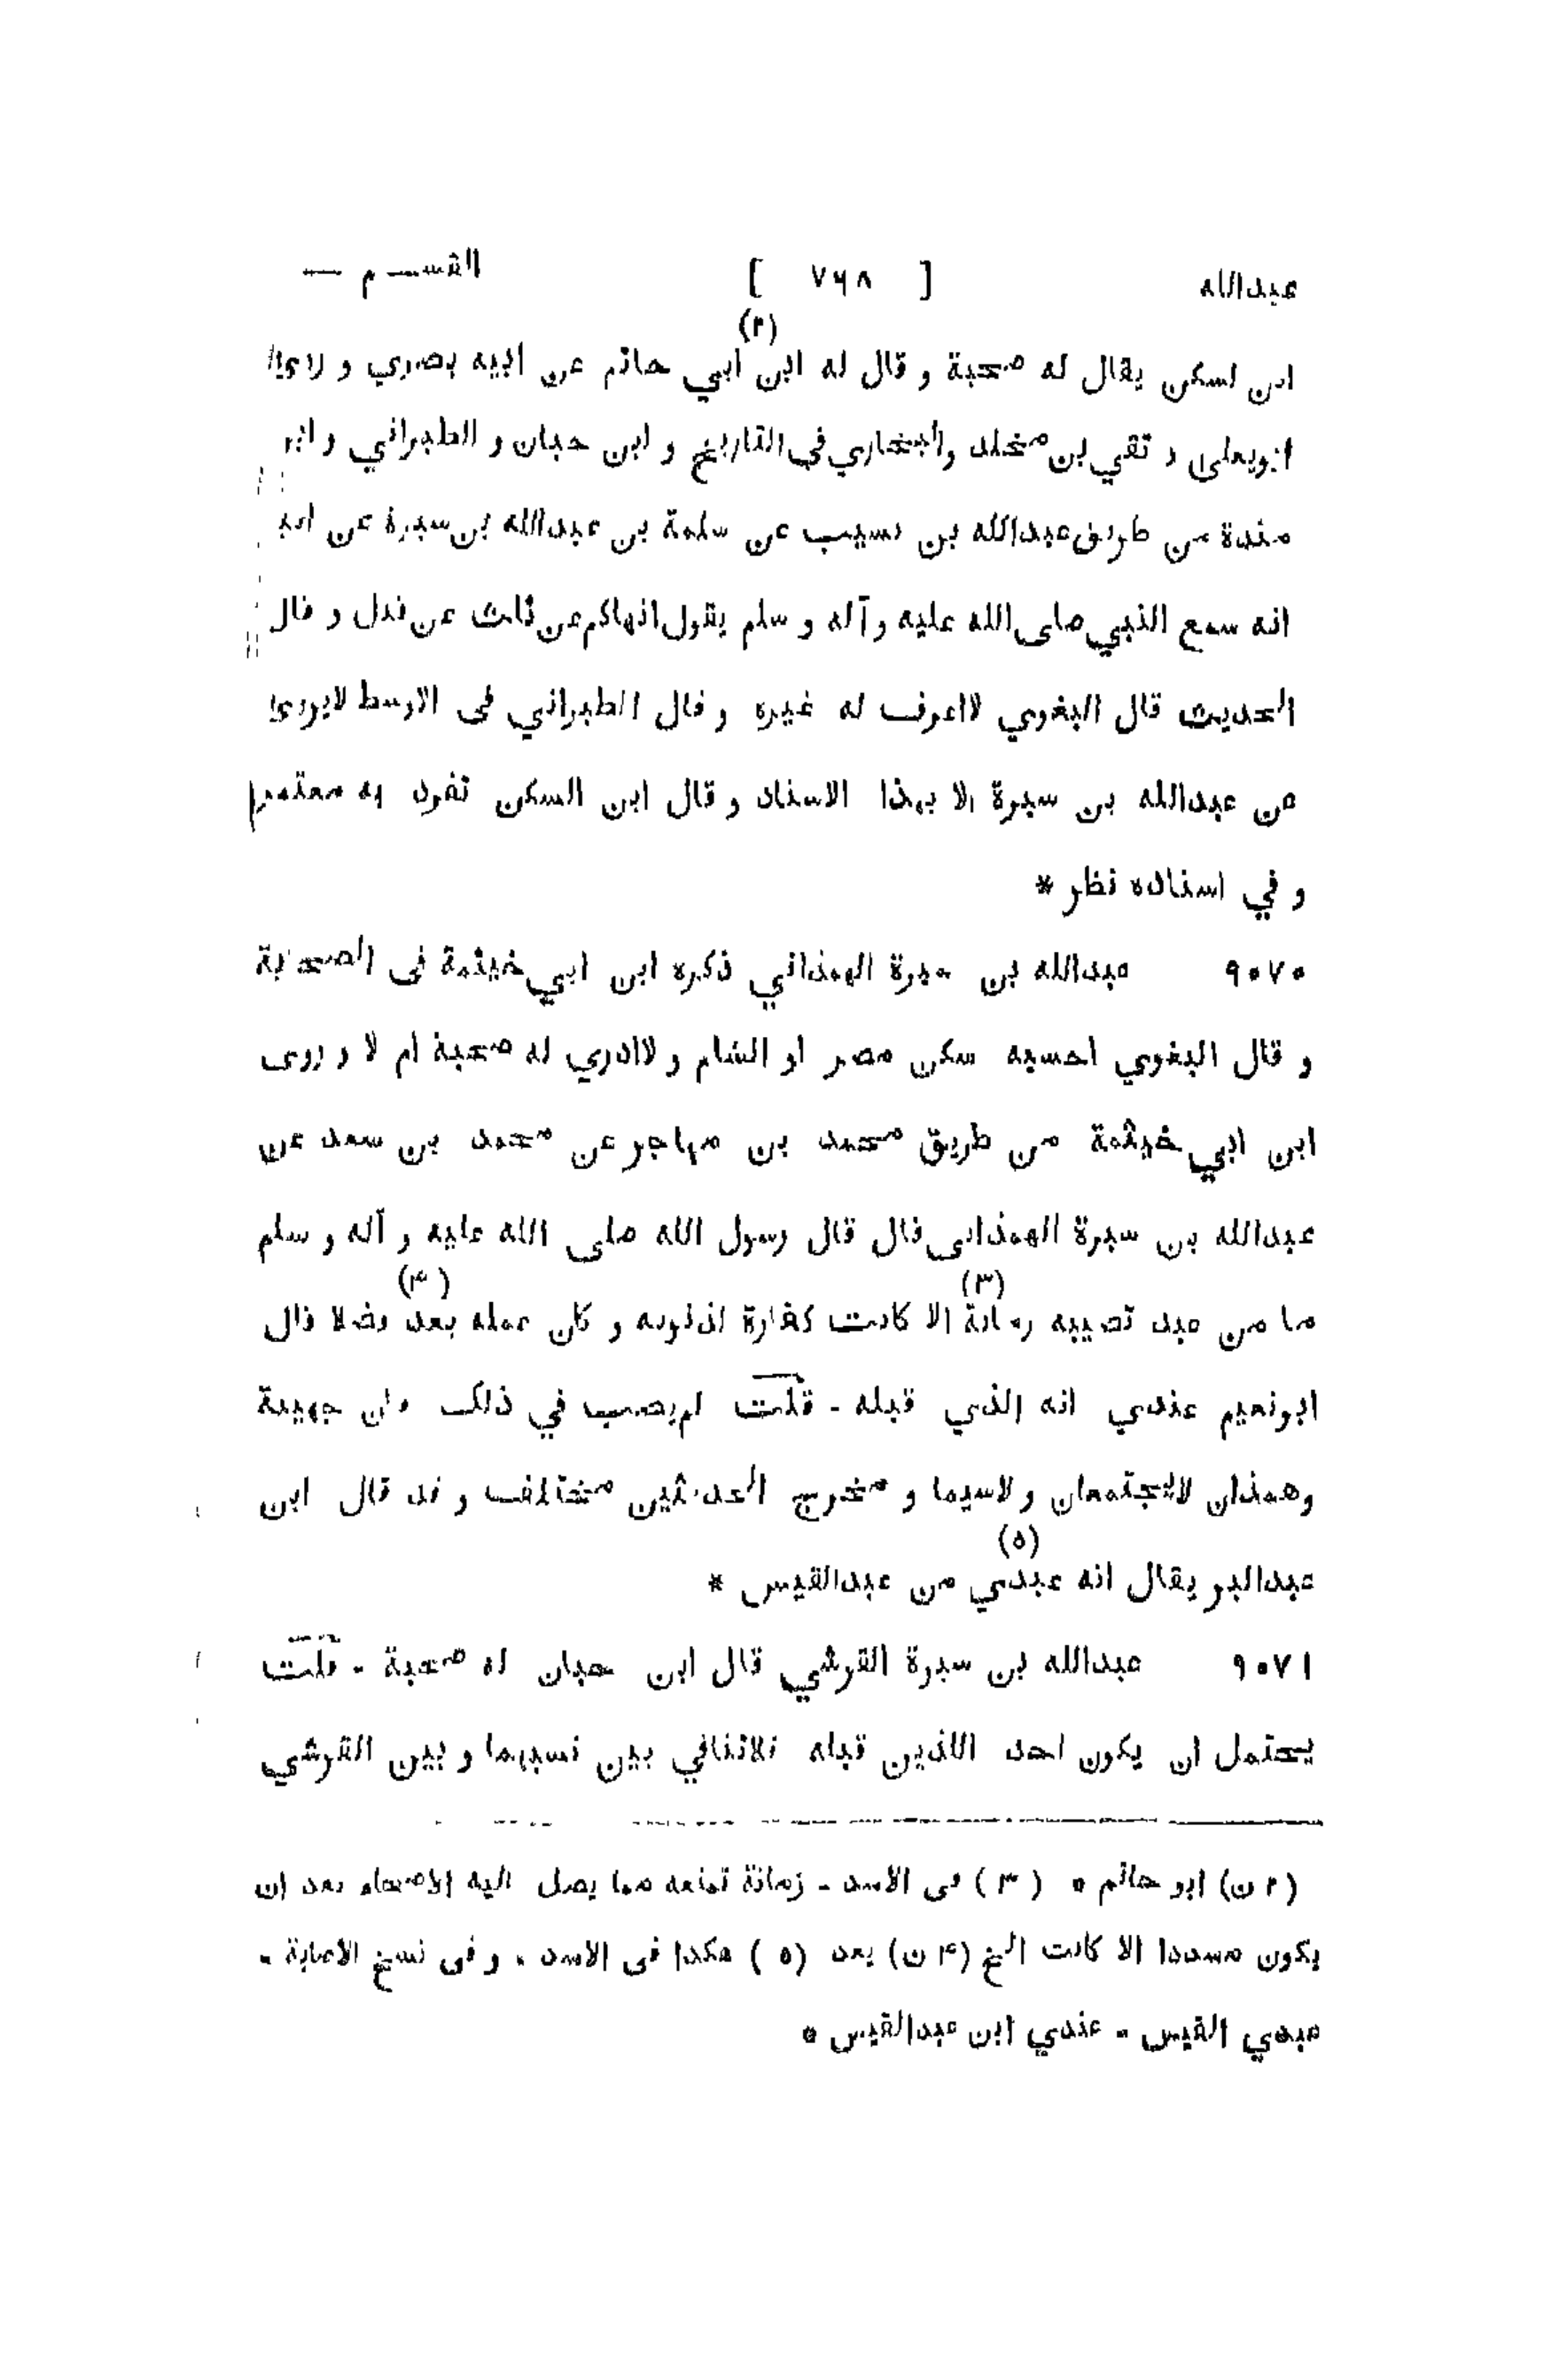 عبدالله [ ٧٦٨ ] القســم —
(٢)
ابن لسكن يقال له صحبة و قال له ابن ابي حاتم عن ابيه بصري و روى
ابويعلى و تقي بن مخلد والبخاري في التاريخ و ابن حبان و الطبراني و ابر
مندة من طريق عبدالله بن نسيب عن سلمة بن عبدالله بن سبرة عن ابيه
انه سمع النبي صلى الله عليه و آله و سلم يقول انهاكم عن ثلاث عن قيل و قال
الحديث قال البغوي لااعرف له غيره و قال الطبراني فى الاوسط لايروى
عن عبدالله بن سبرة الا بهذا الاسناد و قال ابن السكن تفرد به معتمر
و في اسناده نظر *
٩٠٧٠ عبدالله بن سبرة الهمذاني ذكره ابن ابي خيثمة فى الصحابة
و قال البغوي احسبه سكن مصر او الشام و لاادري له صحبة ام لا و روى
ابن ابي خيثمة من طريق محمد بن مهاجر عن محمد بن سعد عن
عبدالله بن سبرة الهمذانى قال قال رسول الله صلى الله عليه و آله و سلم
(٣) (۴)
ما من عبد تصيبه زمانة الا كانت كفارة لذنوبه و كان عمله بعد فضلا قال
ابونعيم عندي انه الذي قبله - قلت لم يصب في ذلك فان جهينة
وهمذان لاتجتمعان و لاسيما و مخرج الحديثين مختلف و قد قال ابن
(٥)
عبدالبر يقال انه عبدي من عبدالقيس *
٩٠٧١ عبدالله بن سبرة القرشي قال ابن حبان له صحبة - قلت
يحتمل ان يكون احد اللذين قبله فلاتنافي بين نسبهما و بين القرشي
(٢ ن) ابو حاتم * (٣) فى الاسد - زمانة تمنعه مما يصل اليه الاصحاء بعد ان
يكون مسددا الا كانت الخ (۴ ن) يعد (٥) هكذا فى الاسد - و فى نسخ الاصابة -
عبدي القيس - عندي ابن عبدالقيس *